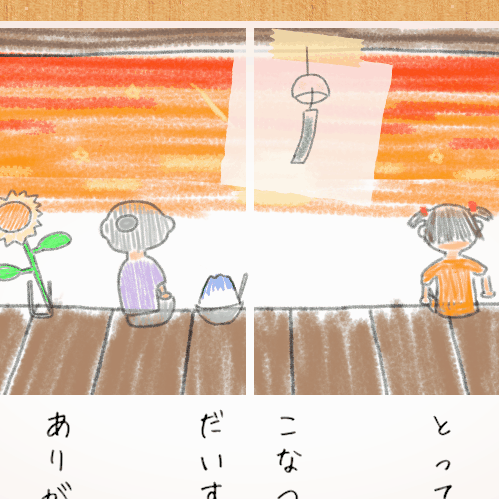 とって
こなつ
だいす
ありが